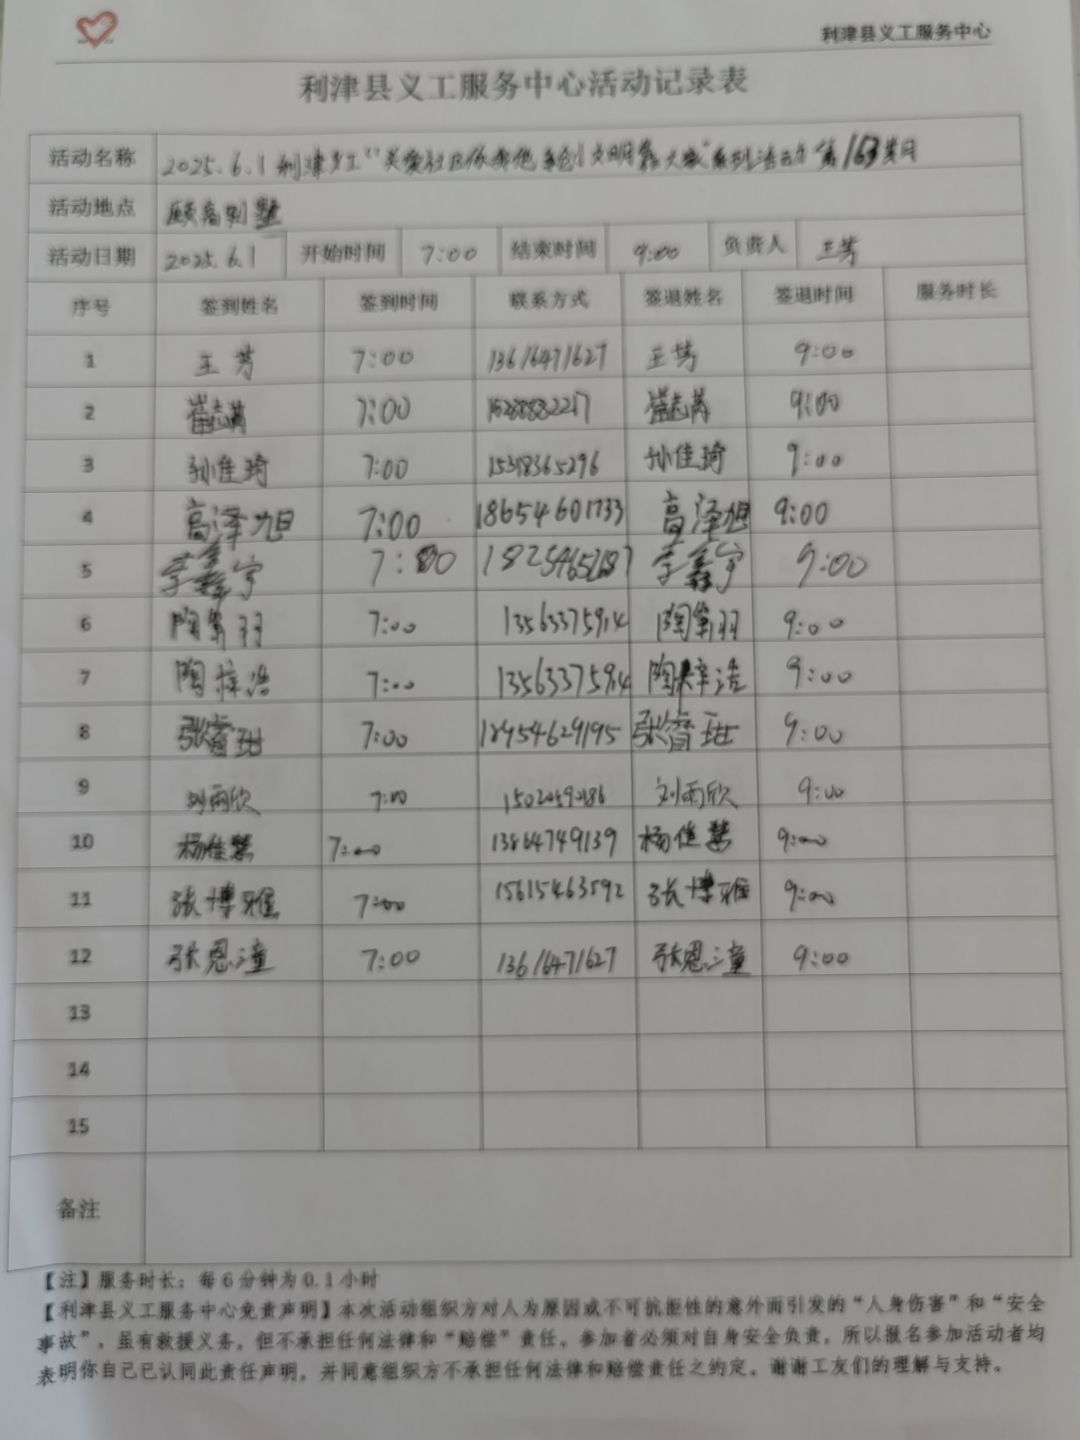 利津县义工服务中心
利津县义工服务中心活动记录表
活动名称 2025.6.1 利津义工“关爱社区你我他 争创文明靠大家”系列活动 第163期
活动地点 颐高别墅
活动日期 2025.6.1 开始时间 7:00 结束时间 9:00 负责人 王芳
序号 签到姓名 签到时间 联系方式 签退姓名 签退时间 服务时长
1 王芳 7:00 13616471627 王芳 9:00
2 崔志芮 7:00 崔志芮 9:00
3 孙佳琦 7:00 15318365296 孙佳琦 9:00
4 高泽旭 7:00 18654601733 高泽旭 9:00
5 李鑫宇 7:00 李鑫宇 9:00
6 7:00 9:00
7 陶梓浩 7:00 陶梓浩 9:00
8 张睿珺 7:00 张睿珺 9:00
9 刘雨欣 7:00 刘雨欣 9:00
10 杨佳慧 7:00 13864749139 杨佳慧 9:00
11 张博雅 7:00 15615463592 张博雅 9:00
12 张恩潼 7:00 13616471627 张恩潼 9:00
13
14
15
备注
【注】服务时长：每6分钟为0.1小时
【利津县义工服务中心免责声明】本次活动组织方对人为原因或不可抗拒性的意外而引发的“人身伤害”和“安全
事故”，虽有救援义务，但不承担任何法律和“赔偿”责任。参加者必须对自身安全负责，所以报名参加活动者均
表明你自己已认同此责任声明，并同意组织方不承担任何法律和赔偿责任之约定。谢谢工友们的理解与支持。